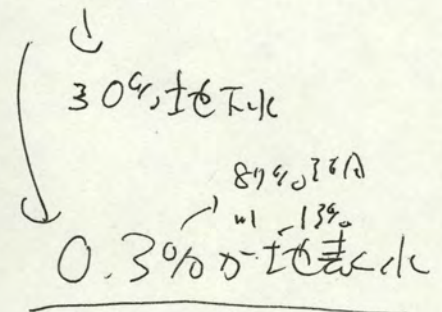 30%地下水
87%
13%
0.3%が地表水